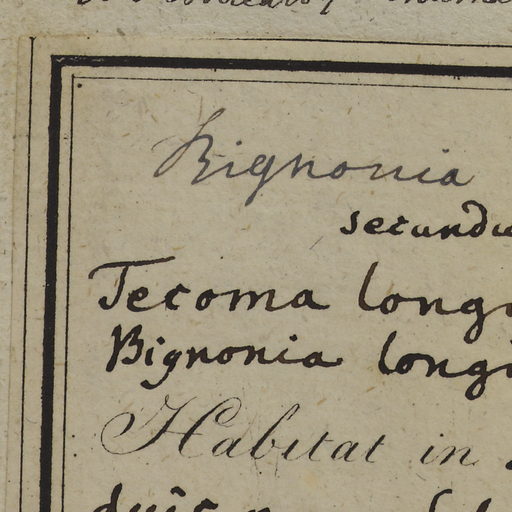 Bignonia
secundu
Tecoma longi
Bignonia longi
Habitat in